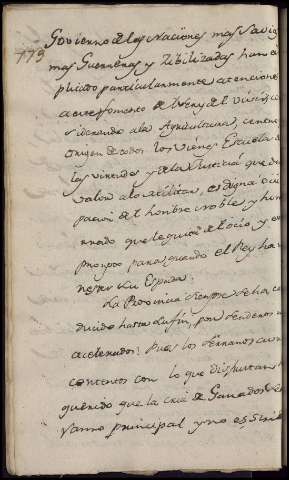 Govierno de las Naciones mas Savi
179
mas Guerreras y Zibilizadas han
plicado particularmente atencione
a este fomento de
siderando a la Agricultura, centro
origen de todos los vienes Escuela
las virtudes y de la Justicia que da
valor a lo Militar, es digna ocu
pacion de el hombre noble y hon
rrado que le quita de el ocio y
prompto para quando el Rey ha
nester su Espada.
La Provincia siempre se ha con
ducido hasta su fin, por senderos
acelerados: Pues los Serranos
contentos con lo que disfrutan
querido que la cria de Ganados
ramo principal y no es